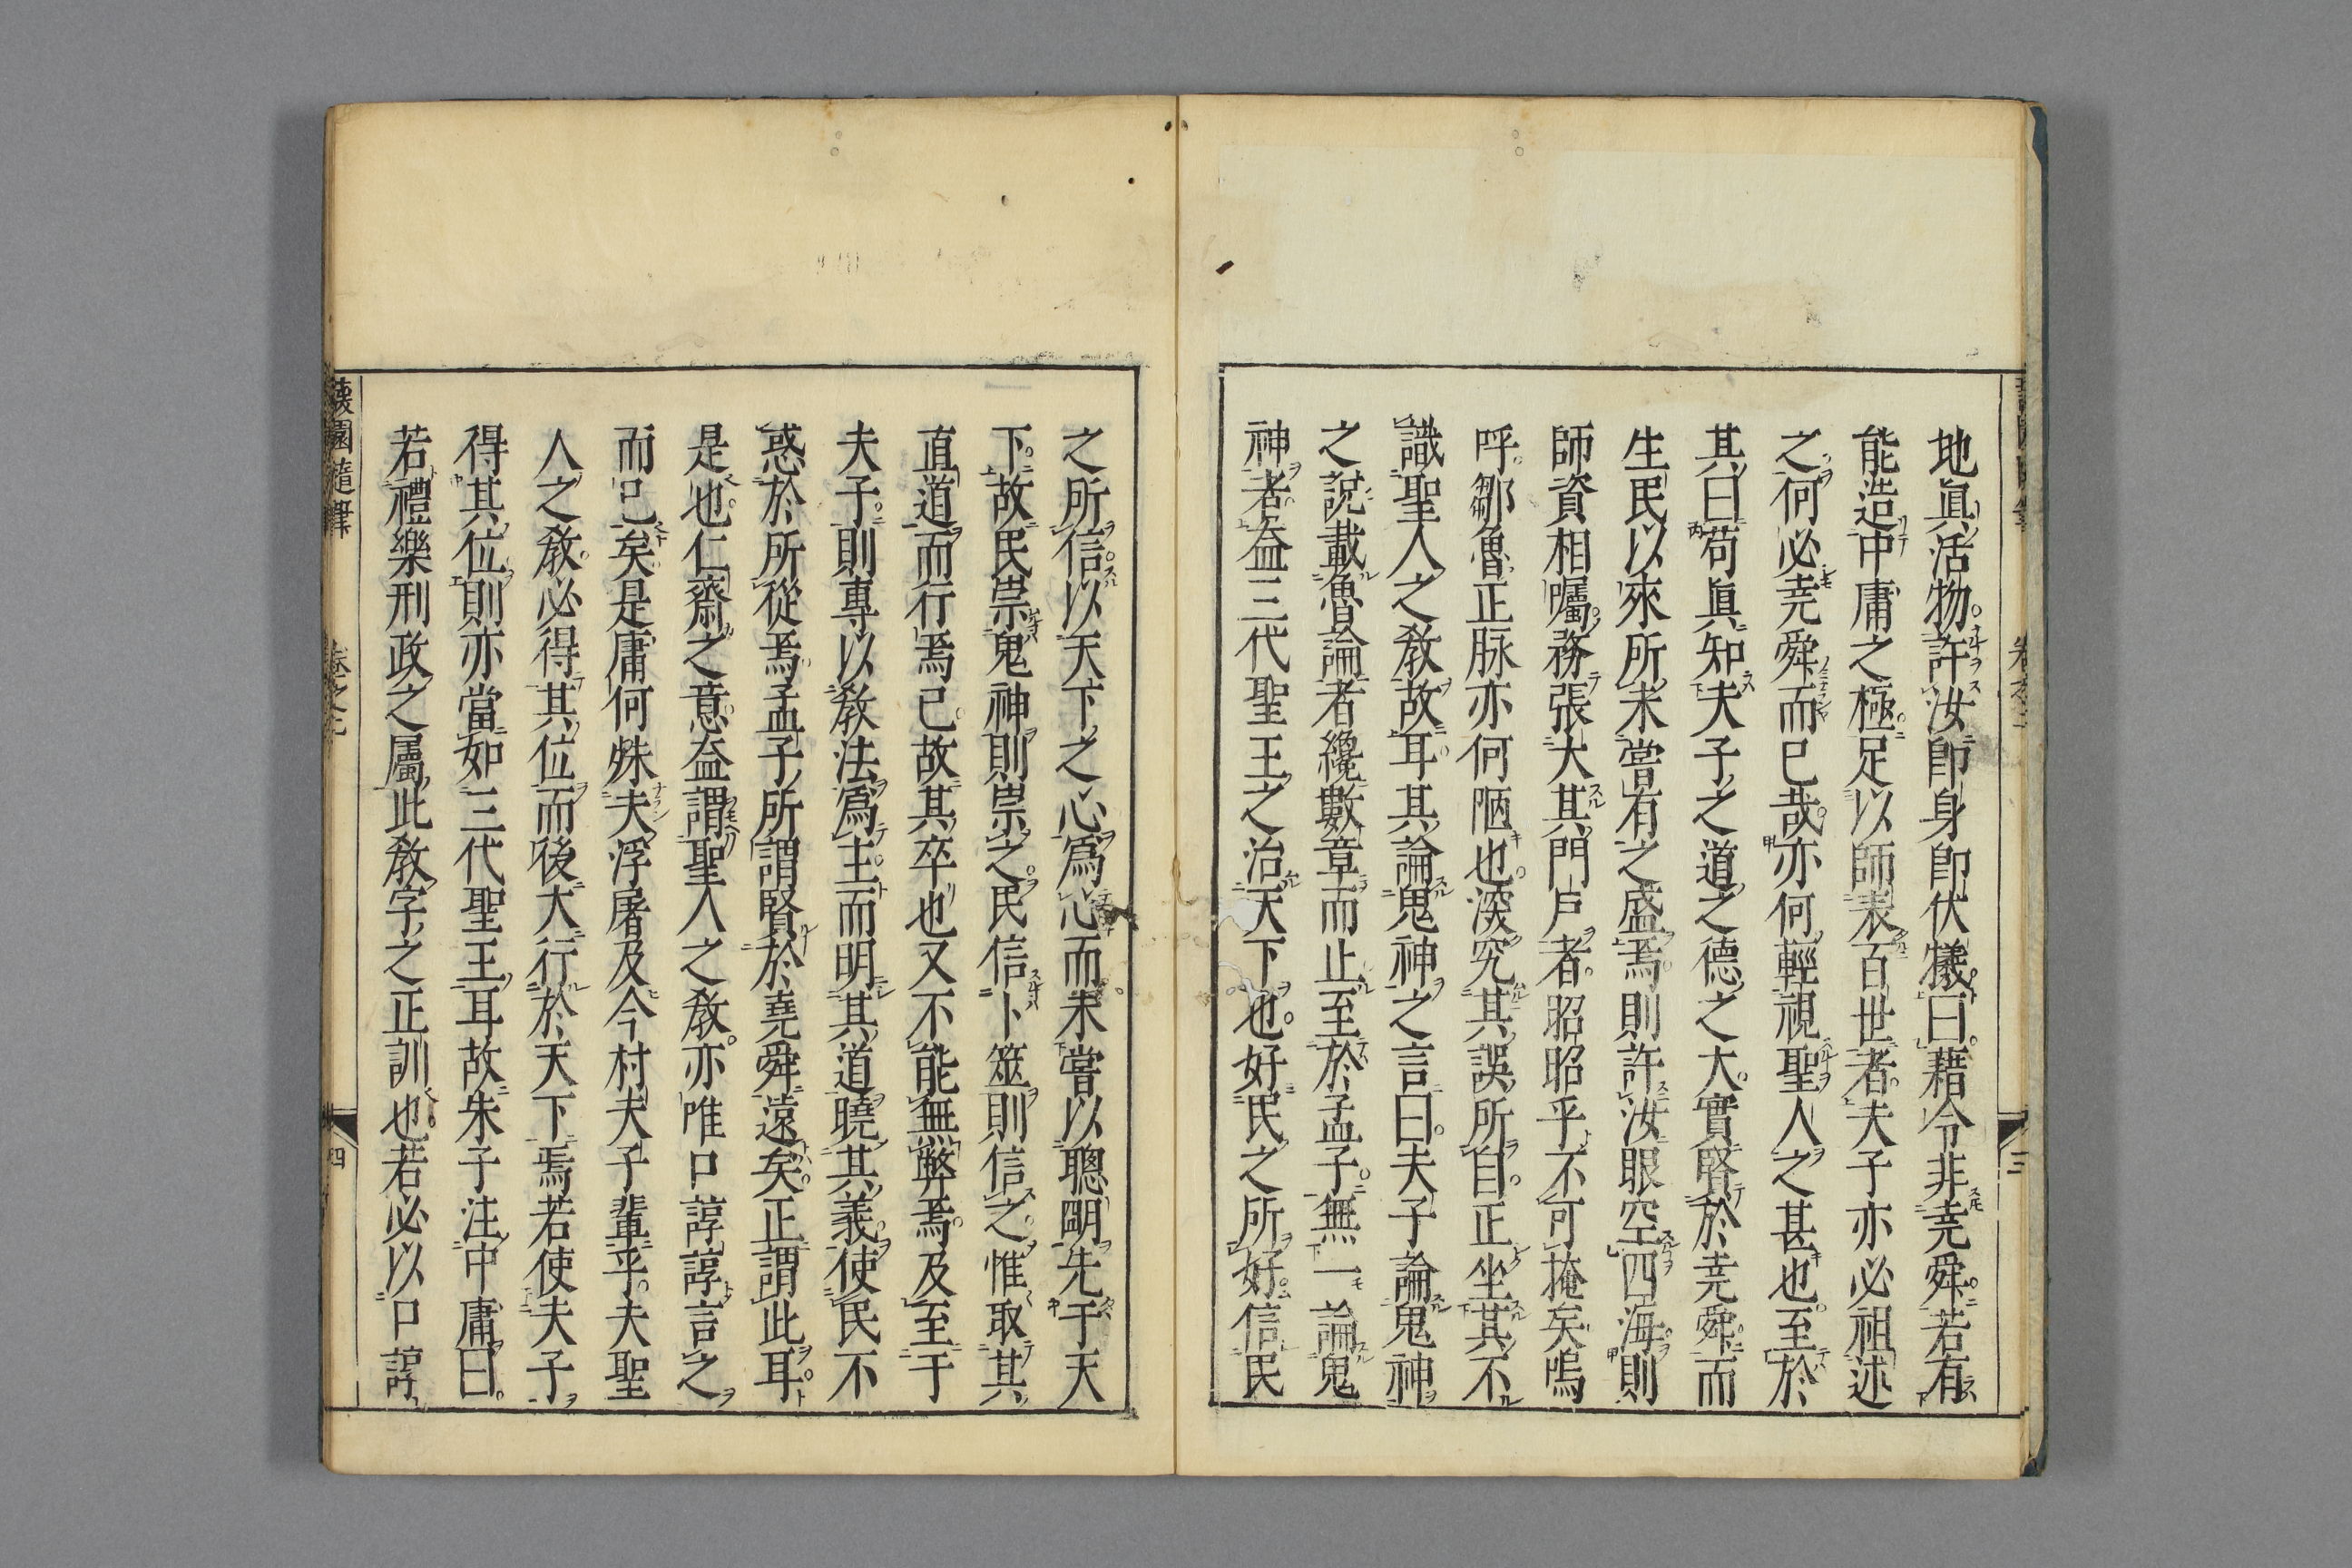 地眞活物許汝卽身卽伏犠曰藉令非尭舜若有
能造中庸之極足以師表百世者夫子亦必祖述
之何必尭舜而已哉亦何輕視聖人之甚也至於
其曰苟眞知夫子之道之德之大實賢於尭舜而
生民以來所未嘗有之盛焉則許汝眼空四海則
師資相囑務張大其門戸者昭昭乎不可掩矣嗚
呼鄒魯正脉亦何陋也深究其誤所自正坐其不
識聖人之敎故耳其論鬼神之言曰夫子論鬼神
之説載魯論者纔數章而止至於孟子無一論鬼
神者盖三代聖王之治天下也好民之所好信民
之所信以天下之心爲心而未嘗以聰明先于天
下故民崇鬼神則崇之民信卜筮則信之惟取其
直道而行焉已故其卒也又不能無弊焉及至于
夫子則專以敎法爲主而明其道曉其義使民不
惑於所從焉孟子所謂賢於堯舜遠矣正謂此耳
是也仁齋之意盖謂聖人之敎亦唯口諄諄言之
而已矣是庸何殊夫浮屠及今村夫子輩乎夫聖
人之敎必得其位而後大行於天下焉若使夫子
得其位則亦當如三代聖王耳故朱子注中庸曰
若禮樂刑政之屬此敎字之正訓也若必以口諄
蘐園隨筆 卷之二 四